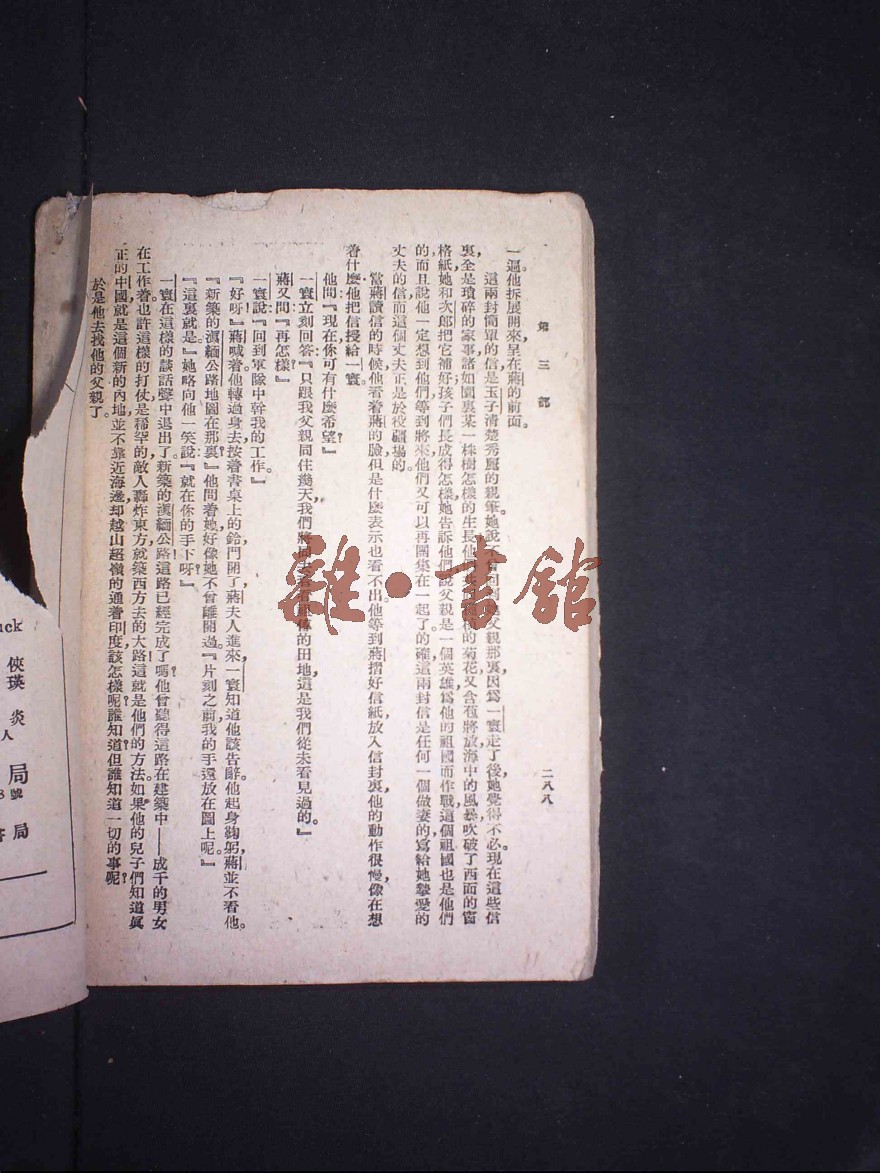 第三部
二八八
一遍他拆展開來，呈在蔣的前面。
這兩封簡單的信是玉子清楚秀麗的親筆，她說不曾回到她父親那裏，因爲一寰走了後，她覺得不必。現在這些信
裏全是瑣碎的家事，諸如園裏某一棵樹怎樣的生長，他的菊花又含苞將放，海中的風暴吹破了西面的窗
格紙，她和次郎把它補好，孩子們長成得怎樣，她告訴他們說父親是一個英雄，爲他的祖國而作戰，這個祖國也是他們
的，而且說他一定想到他們，等到將來，他們又可以再團集在一起了。的確這兩封信是任何一個做妻的，寫給她摯愛的
丈夫的信，而這個丈夫正是於役疆場的。
當蔣讀信的時候，他看着蔣的臉，但是什麼表示也看不出。他等到蔣摺好信紙，放入信封裏，他的動作很慢，像在想
着什麼，他把信授給一寰。
他問：『現在你可有什麼希望？』
一寰立刻回答：『只跟我父親同住幾天，我們將回去看看祖傳的田地，這是我們從未看見過的。』
蔣又問：『再怎樣？』
一寰說：『回到軍隊中幹我的工作。』
『好呀！』蔣喊着，他轉過身去，按着書桌上的鈴，門開了，蔣夫人進來，一寰知道他該告辭，他起身鞠躬，蔣並不看他。
『新築的滇緬公路地圖在那裏？』他問着她，好像她不曾離開過，『片刻之前，我的手還放在圖上呢。』
『這裏就是。』她略向他一笑說：『就在你的手下呀。』
一寰在這樣的談話聲中退出了。新築的滇緬公路！這路已經完成了嗎？他曾聽得這路在建築中——成千的男女
在工作着。也許這樣的打仗是稀罕的，敵人轟炸東方，就築西方去的大路，這就是他們的方法。如果他的兒子們知道眞
正的中國，就是這個新的內地，並不靠近海邊，却越山超嶺的通着印度，該怎樣呢？誰知道？但誰知道一切的事呢？
於是他去找他的父親了。
uck
俠瑛
炎
人
局
8號
書局
雜·書館